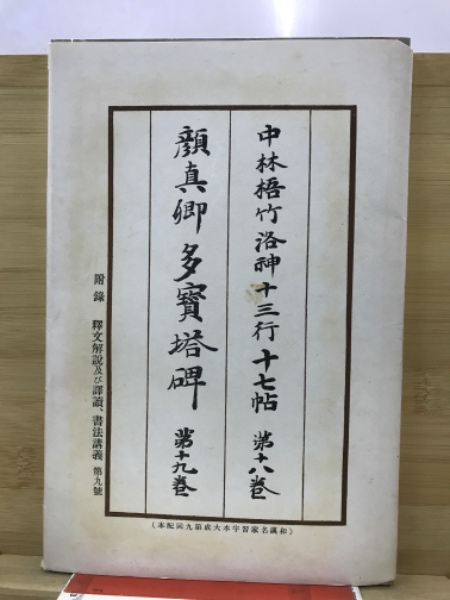 中林梧竹洛神十三行十七帖 第十八巻
顔真卿多寳塔碑 第十九巻
附錄 釋文解說及び譯讀、書法講義 第九號
(和漢名家習字本大成第九回配本)